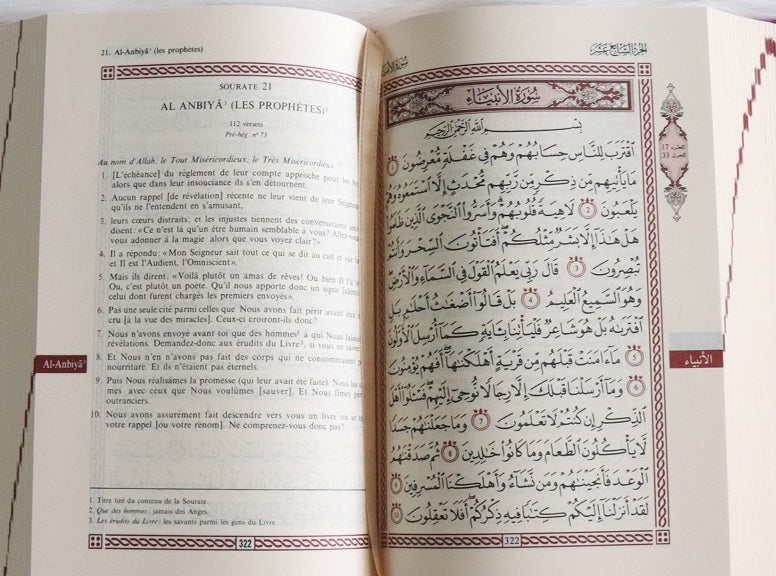 21. Al-Anbiyâ' (les prophètes)
SOURATE 21
AL ANBIYÂ' (LES PROPHÈTES)¹
112 versets
Pré-hég. n° 73
Au nom d'Allah, le Tout Miséricordieux, le Très Miséricordieux.
1. [L'échéance] du règlement de leur compte approche pour les
alors que dans leur insouciance ils s'en détournent.
2. Aucun rappel [de révélation] récente ne leur vient de leur
qu'ils ne l'entendent en s'amusant,
3. leurs cœurs distraits; et les injustes tiennent des conversations
disent: «Ce n'est là qu'un être humain semblable à vous?
vous adonner à la magie alors que vous voyez clair?»
4. Il a répondu: «Mon Seigneur sait tout ce qui se dit au ciel et sur
et Il est l'Audient, l'Omniscient».
5. Mais ils dirent: «Voilà plutôt un amas de rêves! Ou bien Il l'a
Ou, c'est plutôt un poète. Qu'il nous apporte donc un signe
celui dont furent chargés les premiers envoyés».
6. Pas une seule cité parmi celles que Nous avons fait périr avant
cru [à la vue des miracles]. Ceux-ci croiront-ils donc?
7. Nous n'avons envoyé avant toi que des hommes² à qui Nous
révélations. Demandez-donc aux érudits du Livre³, si vous ne
8. Et Nous n'en n'avons pas fait des corps qui ne consommaient
nourriture. Et ils n'étaient pas éternels.
9. Puis Nous réalisâmes la promesse (qui leur avait été faite). Nous les
mes avec ceux que Nous voulûmes [sauver]. Et Nous fîmes
outranciers.
10. Nous avons assurément fait descendre vers vous un livre où se
votre rappel [ou votre renom]. Ne comprenez-vous donc pas?
1. Titre tiré du contenu de la Sourate.
2. Que des hommes: jamais des Anges.
3. Les érudits du Livre: les savants parmi les gens du Livre.
322
Al-Anbiyâ'
الجزء السابع عشر
سورة الأنبياء
بسم الله الرحمن الرحيم
اقترب للناس حسابهم وهم في غفلة معرضون ١
ما يأتيهم من ذكر من ربهم محدث إلا استمعوه وهم
يلعبون ٢ لاهية قلوبهم وأسروا النجوى الذين ظلموا
هل هذا إلا بشر مثلكم أفتأتون السحر وأنتم
تبصرون ٣ قال ربي يعلم القول في السماء والأرض
وهو السميع العليم ٤ بل قالوا أضغاث أحلام بل
افتراه بل هو شاعر فليأتنا بآية كما أرسل الأولون
٥ ما آمنت قبلهم من قرية أهلكناها أفهم يؤمنون
٦ وما أرسلنا قبلك إلا رجالا نوحي إليهم فسئلوا أهل
الذكر إن كنتم لا تعلمون ٧ وما جعلناهم جسدا
لا يأكلون الطعام وما كانوا خالدين ٨ ثم صدقناهم
الوعد فأنجيناهم ومن نشاء وأهلكنا المسرفين ٩
لقد أنزلنا إليكم كتابا فيه ذكركم أفلا تعقلون ١٠
322
الأنبياء